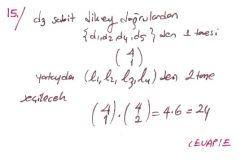 15/ d3 sabit dikey doğrulardan
{d1,d2,d4,d5} den 1 tanesi
(4
1)
yataydan (l1,l2,l3,l4) den 2 tane
seçilecek
(4
1).(4
2)=4.6=24
CEVAP: E